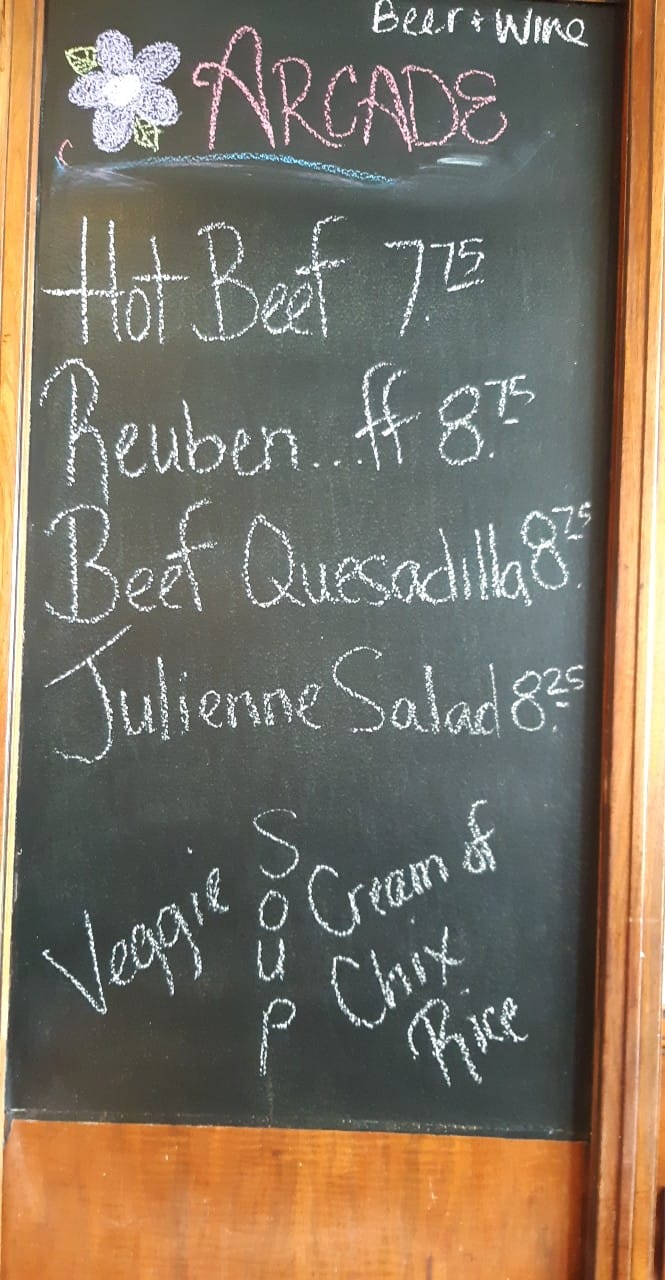 Beer + Wine
ARCADE
Hot Beef 7.75
Reuben...ff 8.75
Beef Quesadilla 8.75
Julienne Salad 8.25
Soup
Veggie
Cream of
Chix
Rice